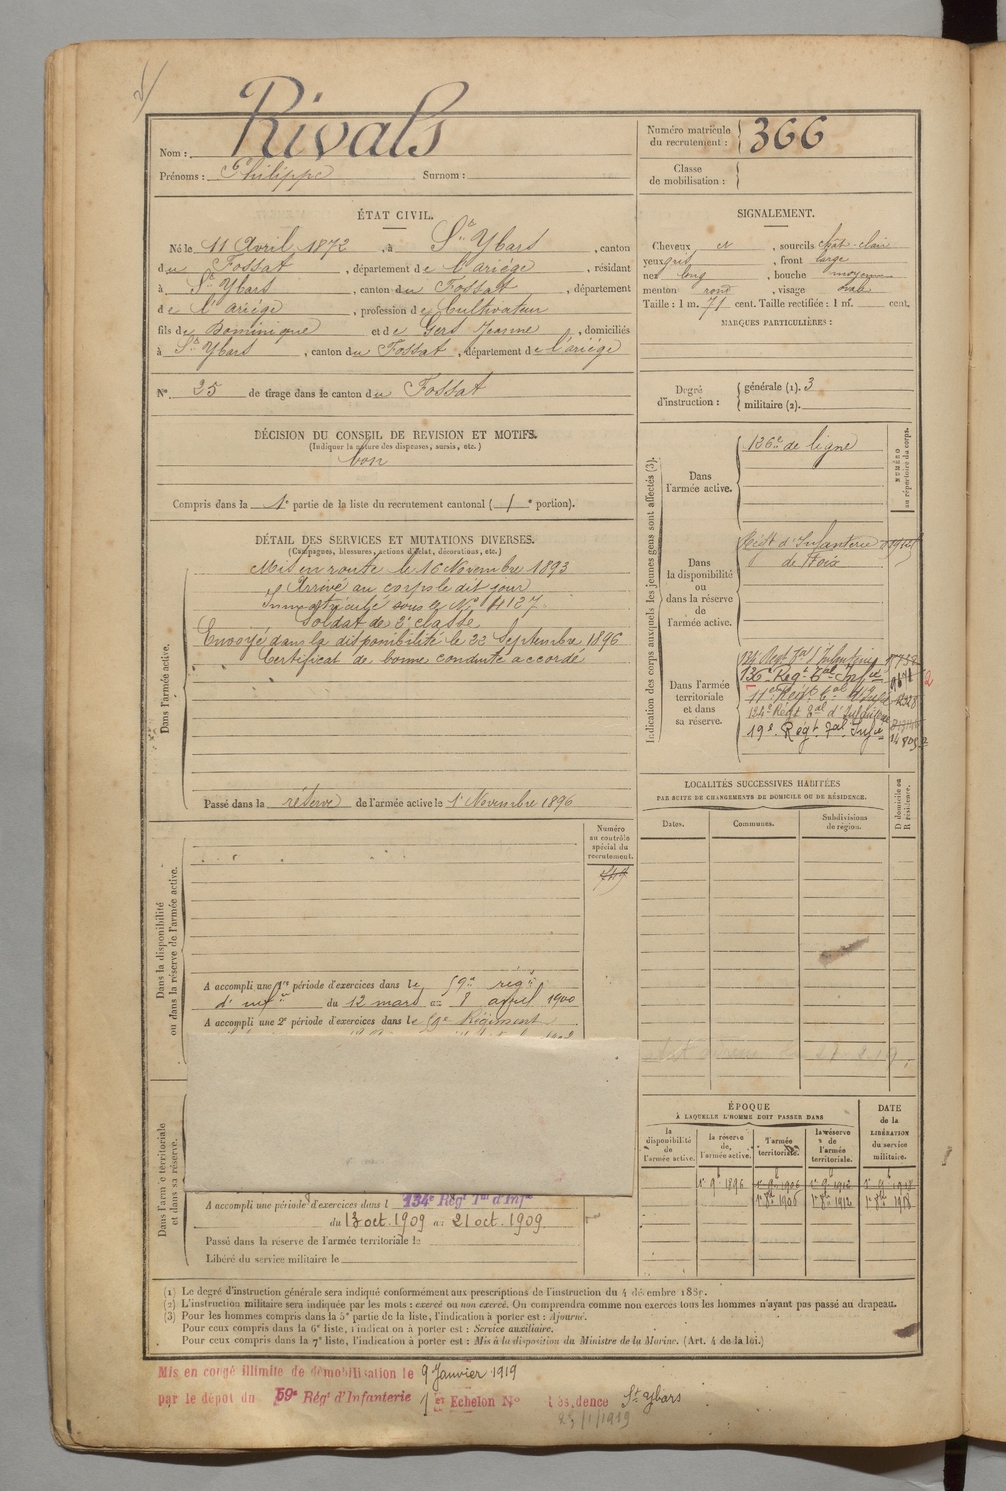 Nom : Rivals
Prénoms : Philippe Surnom :
Numéro matricule du recrutement : 366
Classe de mobilisation :
ÉTAT CIVIL.
Né le 11 Avril 1872, à Ste Ybars, canton
du Fossat, département de l'ariège, résidant
à Ste Ybars, canton du Fossat, département
de l'ariège, profession de Cultivateur
fils de Dominique et de Gers Jeanne, domiciliés
à Ste Ybars, canton du Fossat, département de l'ariège
N° 25 de tirage dans le canton du Fossat
SIGNALEMENT.
Cheveux N, sourcils chât-clair
yeux gris, front large
nez long, bouche moyenne
menton rond, visage
Taille : 1 m. 71 cent. Taille rectifiée : 1 m. cent.
MARQUES PARTICULIÈRES :
Degré d'instruction : générale (1). 3
militaire (2).
DÉCISION DU CONSEIL DE REVISION ET MOTIFS.
(Indiquer la nature des dispenses, sursis, etc.)
bon
Compris dans la 1e partie de la liste du recrutement cantonal ( e portion).
DÉTAIL DES SERVICES ET MUTATIONS DIVERSES.
(Campagnes, blessures, actions d'éclat, décorations, etc.)
Dans l'armée active.
Mis en route le 16 Novembre 1893
Arrivé au corps le dit jour
Immatriculé sous le N° 4127
Soldat de 2e classe
Envoyé dans la disponibilité le 22 Septembre 1896
Certificat de bonne conduite accordé
Passé dans la réserve de l'armée active le 1 Novembre 1896
Indication des corps auxquels les jeunes gens sont affectés (3).
NUMÉRO au répertoire du corps.
Dans l'armée active.
126e de ligne
Dans la disponibilité ou dans la réserve de l'armée active.
Régt d'Infanterie
de Foix
Dans l'armée territoriale et dans sa réserve.
134 Régt Tal Infanterie
136e Régt Tal Infie
134e Régt Tal d'Infanterie
19e Régt Tal Infie
LOCALITÉS SUCCESSIVES HABITÉES
PAR SUITE DE CHANGEMENTS DE DOMICILE OU DE RÉSIDENCE.
Dates. Communes. Subdivisions de région. D domicile ou R résidence.
Numéro au contrôle spécial du recrutement.
Dans la disponibilité ou dans la réserve de l'armée active.
A accompli une 1re période d'exercices dans le 59e régt
d'infie du 12 mars au 8 avril 1900
A accompli une 2e période d'exercices dans le 59e Régiment
Dans l'armée territoriale et dans sa réserve.
A accompli une période d'exercices dans l 134e Régt Tal d'Infie
du 13 oct. 1909 au 21 oct. 1909
Passé dans la réserve de l'armée territoriale le
Libéré du service militaire le
ÉPOQUE
À LAQUELLE L'HOMME DOIT PASSER DANS
la disponibilité de l'armée active.
la réserve de l'armée active.
l'armée territoriale.
la réserve de l'armée territoriale.
DATE de la LIBÉRATION du service militaire.
1r 9 1896 1r 9 1906 1r 9 1912 1r 9 1918
1r 8bre 1906 1r 8bre 1912 1r 8bre 1918
(1) Le degré d'instruction générale sera indiqué conformément aux prescriptions de l'instruction du 4 décembre 1889.
(2) L'instruction militaire sera indiquée par les mots : exercé ou non exercé. On comprendra comme non exercés tous les hommes n'ayant pas passé au drapeau.
(3) Pour les hommes compris dans la 5e partie de la liste, l'indication à porter est : Ajourné.
Pour ceux compris dans la 6e liste, l'indication à porter est : Service auxiliaire.
Pour ceux compris dans la 7e liste, l'indication à porter est : Mis à la disposition du Ministre de la Marine. (Art. 4 de la loi.)
Mis en congé illimité de démobilisation le 9 Janvier 1919
par le dépôt du 59e Régt d'Infanterie 1er Echelon N° Résidence St Ybars